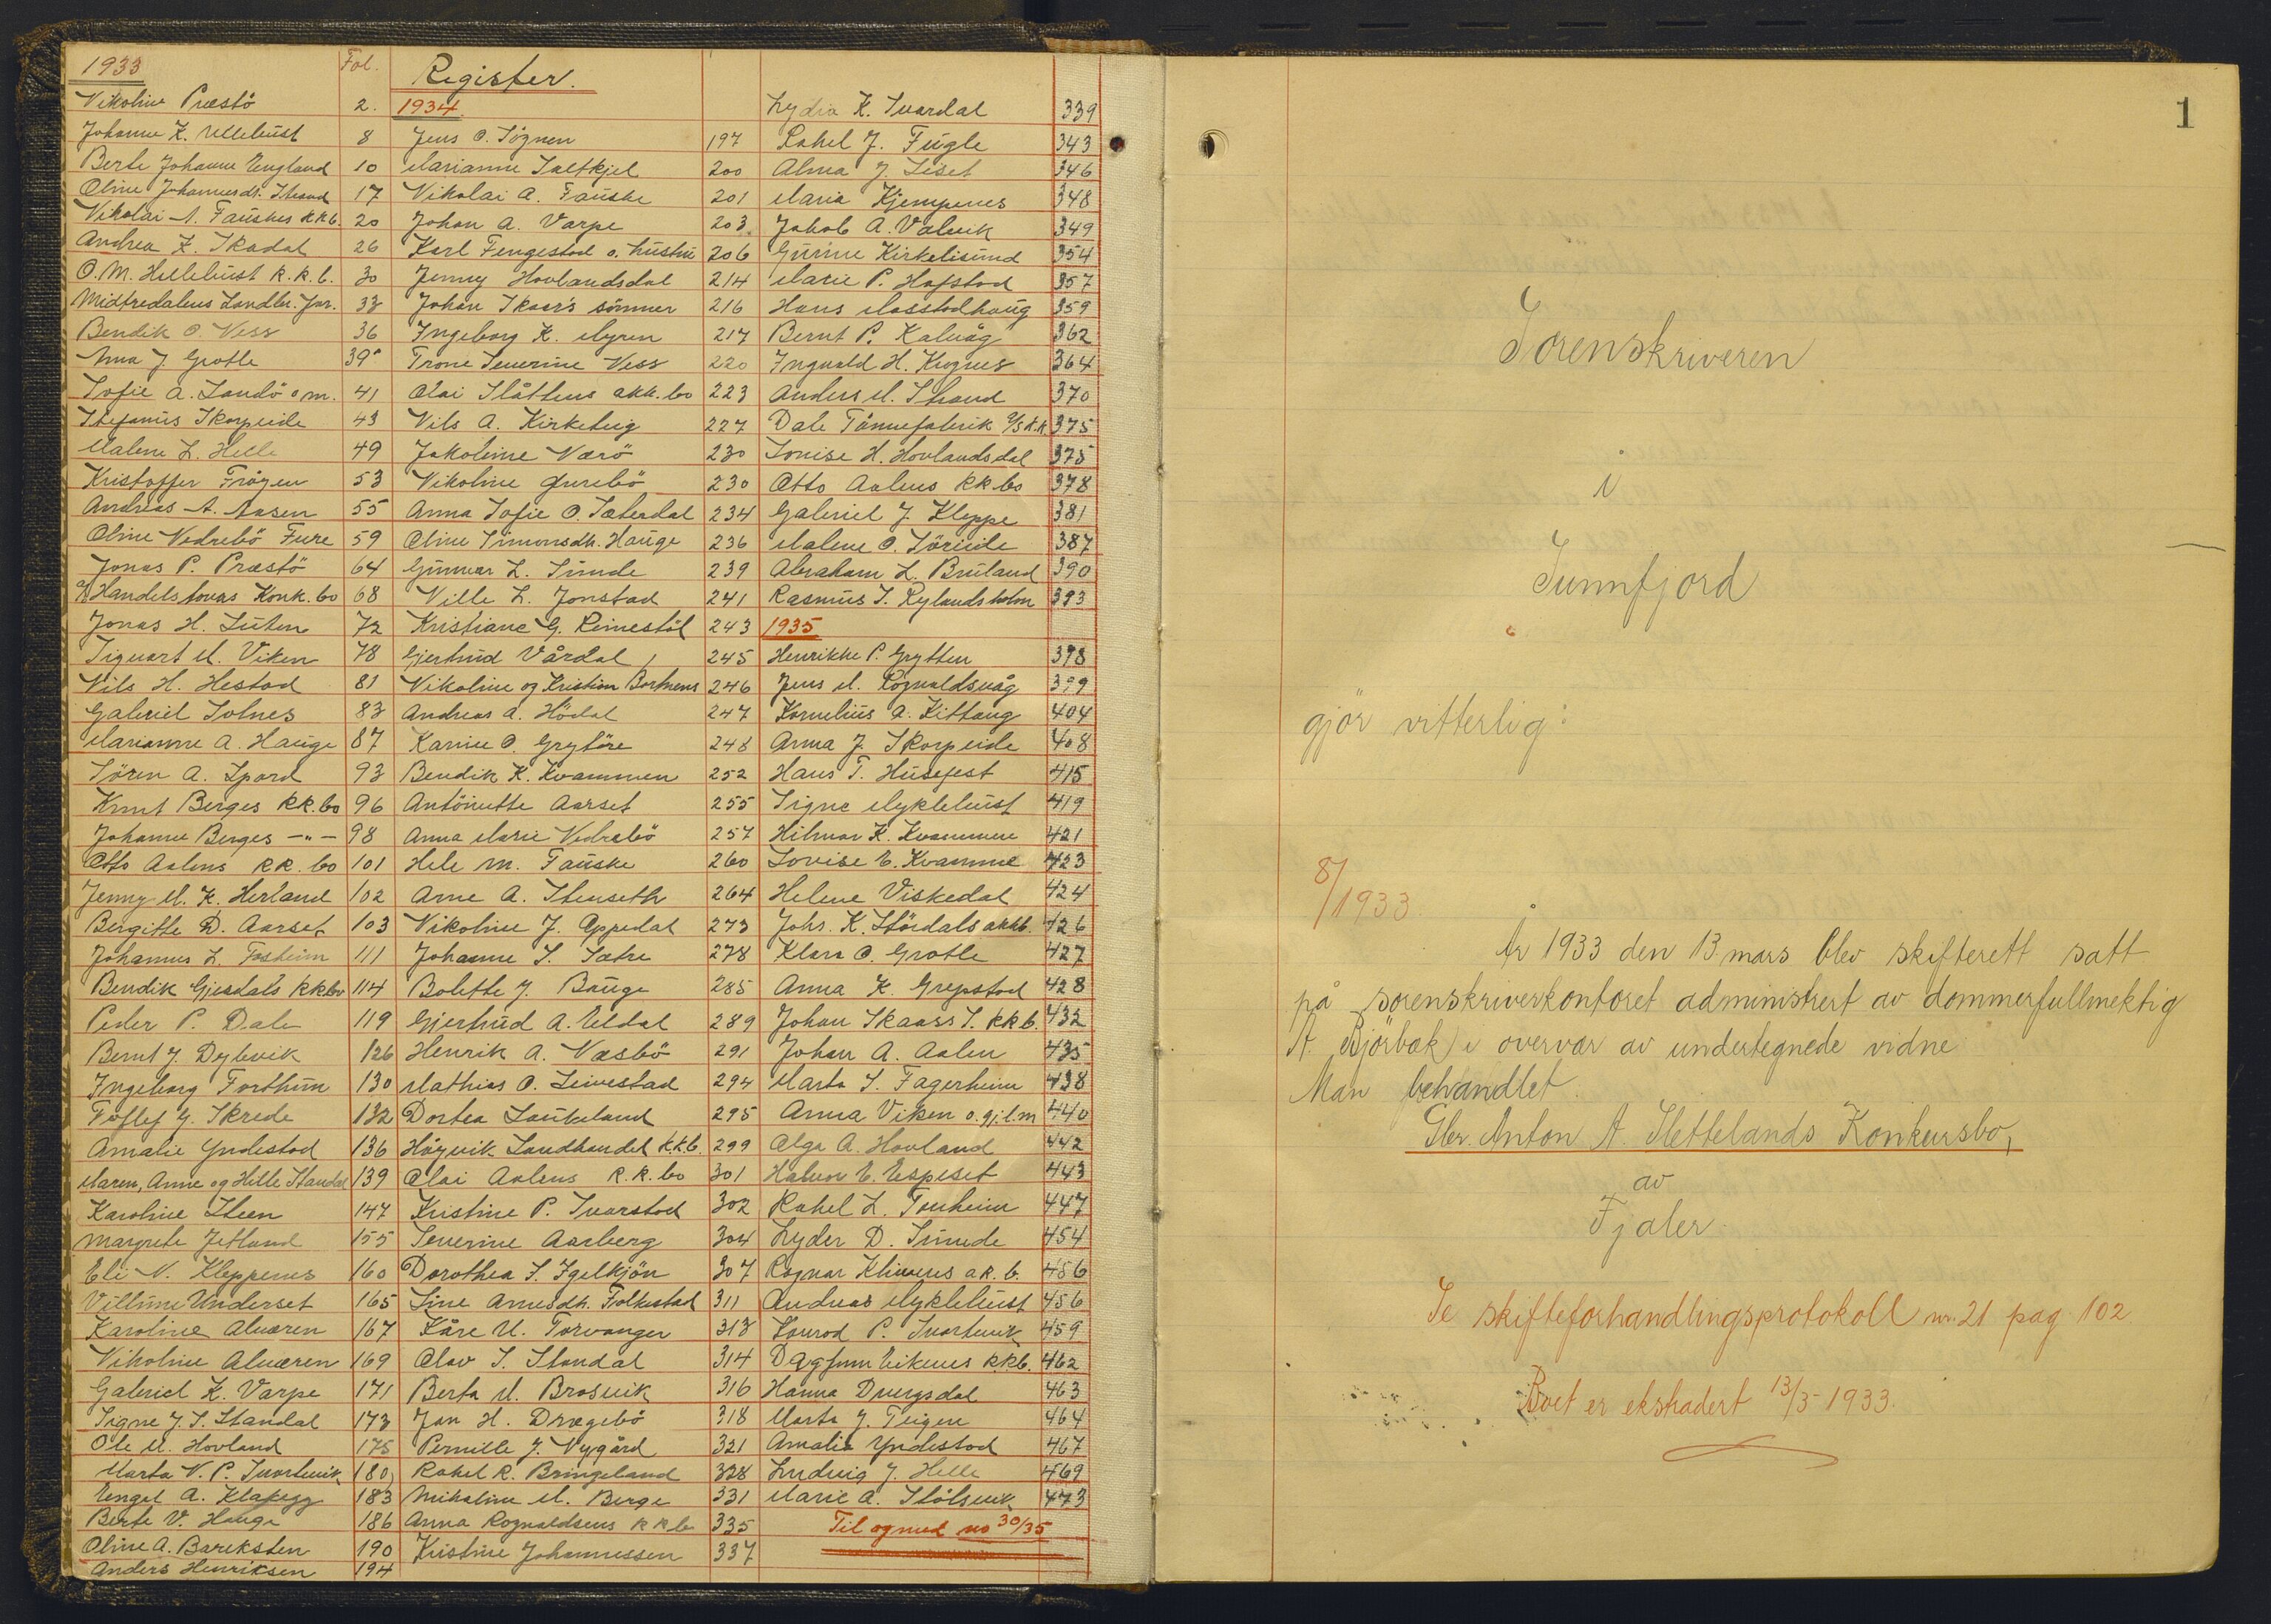 1933 Fol.
Nikoline Præstö 2.
Johanne K. Ullebust 8
Berte Johanne England 10
Oline Johannesdt. Strand 17
Nikolai A. Fauskes k.k.b. 20
Andrea K. Skadal 26
O. M. Hellebust k.k.b. 30
Midtredalens Landbr. For. 33
Bendik O Ness 36
Anna J. Grotle 39a
Sofie A. Sandö o m. 41
Stefanus Skorpeide 43
Malene L. Helle 49
Kristoffer Fröyen 53
Andreas A. Aasen 55
Oline Vedrebö Fure 59
Jonas P. Præstö 64
A/S Handelshuus Konk. bo 68
Jonas H. Luten 72
Sigvart M. Viken 78
Nils H. Hestad 81
Gabriel Solnes 83
Marianne A. Hauge 87
Sören A. Spord 93
Knut Berges kk. bo 96
Johanne Berges -"- 98
Otto Aalens kk. bo 101
Jenny M. K. Herland 102
Bergitte D. Aarset 103
Johannes L. Fosheim 111
Bendik Gjesdals kkbo 114
Peder P. Dale 119
Bernt J. Dybvik 126
Ingeborg Forthun 130
Tollef G. Skrede 132
Amalie Yndestad 136
Maren, Anne og Hille Standal 139
Karoline Steen 147
Margrete Jetlund 155
Eli N. Kleppenes 160
Villume Underset 165
Karoline Alværen 167
Nikoline Alværen 169
Gabriel K. Varpe 171
Signe J. S. Standal 173
Ole M. Hovland 175
Marta N. P. Svortevik 180
Engel A. Klakegg 183
Berte V. Hauge 186
Oline A. Bareksten 190
Anders Henriksen 194
Register.
1934.
Jens O. Sögnen 197
Marianne Saltkjel 200
Nikolai A. Fauske 201
Johan A. Varpe 203
Karl Fengestad o. hustru 206
Jenny Hovlandsdal 214
Johan Skaar's sönner 216
Ingeborg K. Myren 217
Trone Severine Ness 220
Olai Slåttens akk. bo 223
Nils A. Kirketeig 227
Jakobine Nærö 230
Nikoline Gurebö 230
Anna Sofie O. Sæterdal 234
Oline Simonsdt. Hauge 236
Gunnar L. Sunde 239
Nille L. Jonstad 241
Kristiane G. Reinestöl 243
Gjertrud Vårdal 245
Nikoline og Kristian Bortnens 246
Andreas A. Hödal 247
Karine O. Grytöre 248
Bendik K. Kvammen 252
Antönette Aarset 255
Anna Marie Vedrebö 257
Hele M. Fauske 260
Arne A. Stenseth 264
Nikoline J. Oppedal 273
Johanne S. Sætre 278
Bolette J. Bauge 285
Gjertrud A. Eldal 289
Henrik A. Næsbö 291
Mathias O. Leivestad 294
Dortea Saubeland 295
Höyvik Landhandel k.k.b. 299
Olai Aalens k.k. bo 301
Kristine P. Svarstad 302
Severine Aarberg 304
Dorothea S. Igelkjön 307
Line Arnesdt. Folkestad 311
Kåre M. Torvanger 313
Olav S. Standal 314
Berta M. Brosvik 316
Jan H. Drægebö 318
Pernille J. Nygård 321
Rakel R. Bringeland 328
Mikaline M. Berge 331
Anna Rognaldsens kkb 335
Kristine Johannessen 337
Lydia K. Svardal 339
Rakel J. Fugle 343
Alma J. Liset 346
Maria Kjempenes 348
Jakob A. Valvik 349
Gurine Kirkelisund 354
Marie P. Hafstad 357
Hans Masstadhaug 359
Bernt P. Kalvåg 362
Ingvald H. Krognes 364
Anders M. Strand 370
Dale Tönnefabrik A/S k.k. 375
Louise H. Hovlandsdal 375
Otto Aalens kk bo 378
Gabriel J. Kleppe 381
Malene O. Söreide 387
Abraham L. Bruland 390
Rasmus S. Rylandsholm 393
1935
Henrikke P. Grytten 398
Jens M. Rognaldsvåg 399
Kornelius A. Kittang 404
Anna J. Skorpeide 408
Hans T. Husefest 415
Signe Myklebust 419
Hilmar K. Kvammen 421
Lovise E. Kvamme 423
Helene Viskedal 424
Johs. K. Stördals akkb. 426
Klara O. Grotle 427
Anna K. Grepstad 428
Johan Skaars S. kkb. 432
Johan A. Aalen 435
Marta S. Fagerheim 438
Anna Viken o. gj.l.m 440
Olga A. Hovland 442
Halvor E. Espeset 443
Rakel L. Tonheim 447
Lyder D. Sunde 454
Ragnar Klivenes ak. b. 456
Andreas Myklebust 456
Konrad P. Svortevik 459
Dagfinn Eikenes kkb. 462
Hanna Dvergsdal 463
Marta J. Teigen 464
Amalie Yndestad 467
Ludvig J. Helle 469
Marie A. Stölsvik 473
Til og med no 30/35
1
Sorenskriveren
i
Sunnfjord
gjör vitterlig:
8/1933.
År 1933 den 13 mars blev skifterett satt
på sorenskriverkontoret administrert av dommerfullmektig
A. Björbæk i overvær av undertegnede vidne
Man behandlet.
Gbr. Anton A. Slettelands Konkursbo,
av
Fjaler
Se skifteforhandlingsprotokoll nr. 21 pag. 102.
Boet er ekstradert 13/3-1933.